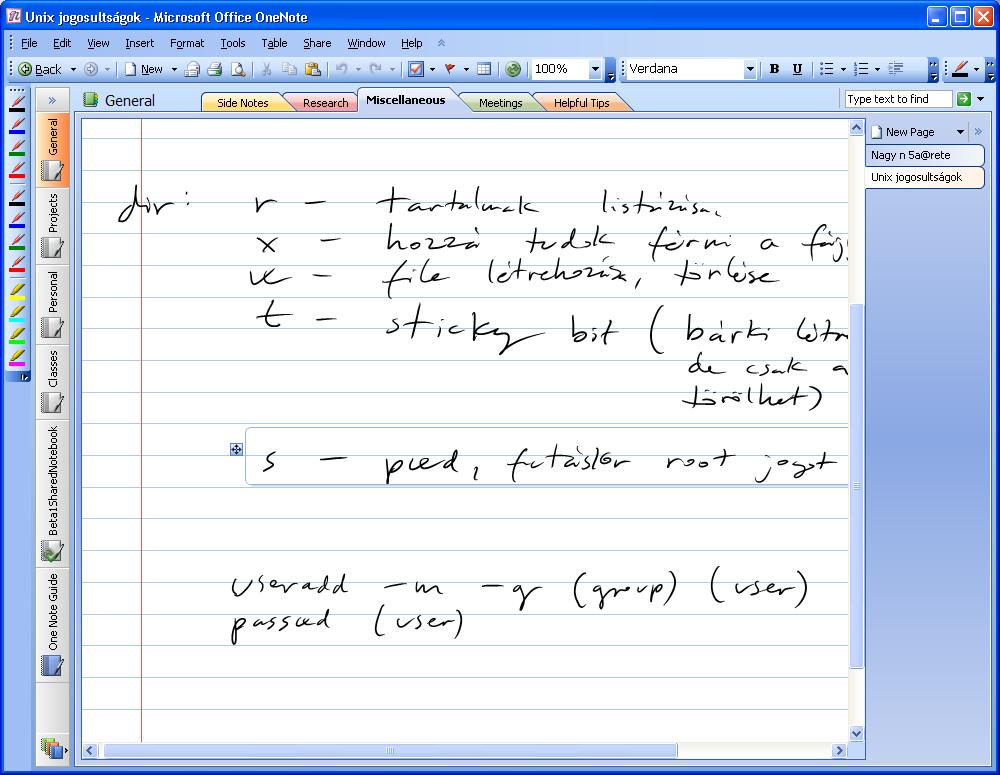 Unix jogosultságok - Microsoft Office OneNote
File Edit View Insert Format Tools Table Share Window Help
Back New 100% Verdana B U
General Side Notes Research Miscellaneous Meetings Helpful Tips Type text to find
New Page
Nagy n 5a@rete
Unix jogosultságok
General
Projects
Personal
Classes
Beta1SharedNotebook
One Note Guide
dir: r - tartalmak listázása.
x - hozzá tudok férni a
w - file létrehozás, törlése
t - sticky bit (bárki
de csak a
törölhet)
s - pwd, futáskor root jogot
useradd -m -g (group) (user)
passwd (user)